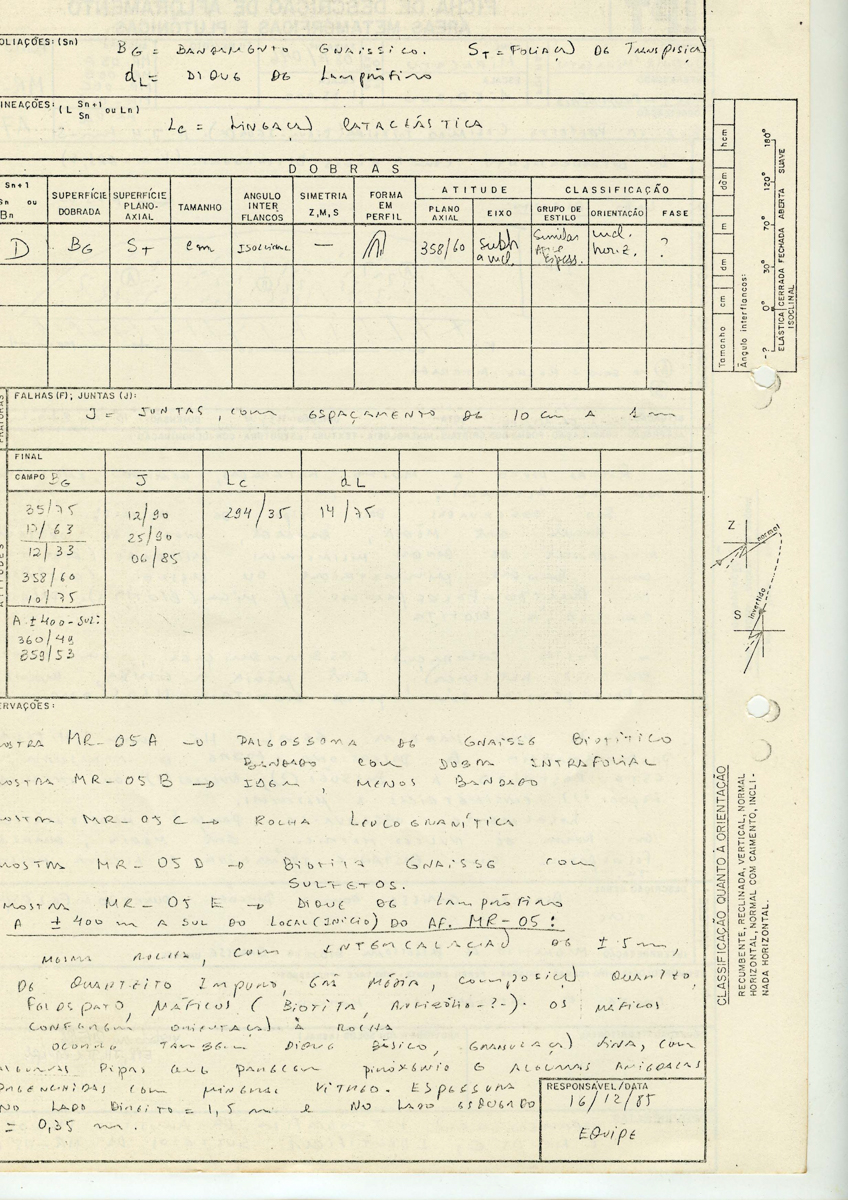 FICHA DE DESCRIÇÃO DE AFLORAMENTO
OLIAÇÕES: (Sn)
BG = BANDAMENTO GNAISSICO. ST = FOLIAÇÃO DE TRANSPOSIÇÃ
dL = DIQUE DE LAMPRÓFIRO
INEAÇÕES: (L Sn+1 Sn ou Ln)
LC = LINEAÇÃO CATACLÁSTICA
DOBRAS
Sn+1 Sn ou Bn
SUPERFÍCIE DOBRADA
SUPERFÍCIE PLANO-AXIAL
TAMANHO
ANGULO INTER FLANCOS
SIMETRIA Z,M,S
FORMA EM PERFIL
ATITUDE
PLANO AXIAL
EIXO
CLASSIFICAÇÃO
GRUPO DE ESTILO
ORIENTAÇÃO
FASE
D BG ST cm ISOCLINAL — 358/60 subh a incl Similar Ápice Espess. incl. horiz. ?
FALHAS (F); JUNTAS (J):
J = JUNTAS, COM ESPAÇAMENTO DE 10 cm A 1 m
FINAL
CAMPO BG J LC dL
35/75 12/90 294/35 14/75
17/63 25/90
12/33 06/85
358/60
10/75
A ±400-SUL:
360/49
359/53
ERVAÇÕES:
MOSTRA MR-05A → PALEOSSOMA DE GNAISSE BIOTÍTICO
BANDADO COM DOBRA INTRAFOLIAL
MOSTRA MR-05B → IDEM, MENOS BANDADO
MOSTRA MR-05C → ROCHA LEUCOGRANÍTICA
MOSTRA MR-05D → BIOTITA GNAISSE COM
SULFETOS.
MOSTRA MR-05E → DIQUE DE LAMPRÓFIRO
A ±400 m A SUL DO LOCAL (INÍCIO) DO AF. MR-05:
MESMA ROCHA, COM INTERCALAÇÃO DE ±5m,
DE QUARTZITO IMPURO, GRÃ MÉDIA, COMPOSIÇÃO QUARTZO,
FELDSPATO, MÁFICOS (BIOTITA, ANFIBÓLIO-?-). OS MÁFICOS
CONFEREM ORIENTAÇÃO À ROCHA
OCORRE TAMBÉM DIQUE BÁSICO, GRANULAÇÃO FINA, COM
ALGUMAS RIPAS QUE PARECEM PIROXÊNIO E ALGUMAS AMIGDALAS
PREENCHIDAS COM MINERAL VÍTREO. ESPESSURA
NO LADO DIREITO = 1,5 m E NO LADO ESQUERDO
= 0,35 m.
RESPONSÁVEL/DATA
16/12/85
EQUIPE
Tamanho cm dm m dam hcm
Ângulo interflancos:
-? 0° 30° 70° 120° 180°
ELÁSTICA CERRADA FECHADA ABERTA SUAVE
ISOCLINAL
Z
normal
S
invertido
CLASSIFICAÇÃO QUANTO À ORIENTAÇÃO
RECUMBENTE, RECLINADA, VERTICAL, NORMAL
HORIZONTAL, NORMAL COM CAIMENTO, INCLI-
NADA HORIZONTAL.